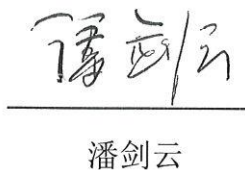 潘剑云
潘剑云